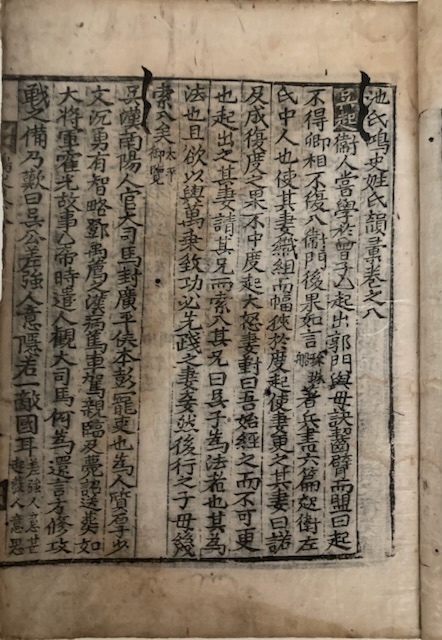 池氏鴻史姓氏韻彙卷之八
吳起衛人嘗學於曾子乙起出郭門與母訣齧臂而盟曰起
不得卿相不復入衛門後果如言 著兵書六篇 起衛左
氏中人也使其妻織組而幅狹於度起使妻更之其妻曰諾
及成復度之果不中度起大怒妻對曰吾始經之而不可更
也起出之其妻請其兄而索入其兄曰吳子爲法者也其爲
法也且欲以與萬乘致功必先踐之妻妾然後行之子毋幾
索入矣 太平御覽
吳漢南陽人官大司馬封廣平侯本彭寵吏也爲人質厚少
文沉勇有智略鄧禹薦之漢病篤車駕親臨及薨詔送葬如
大將軍霍光故事乙帝時遣人觀大司馬何爲還言方修攻
戰之備乃歎曰吳公差強人意隱若一敵國耳 差強人意